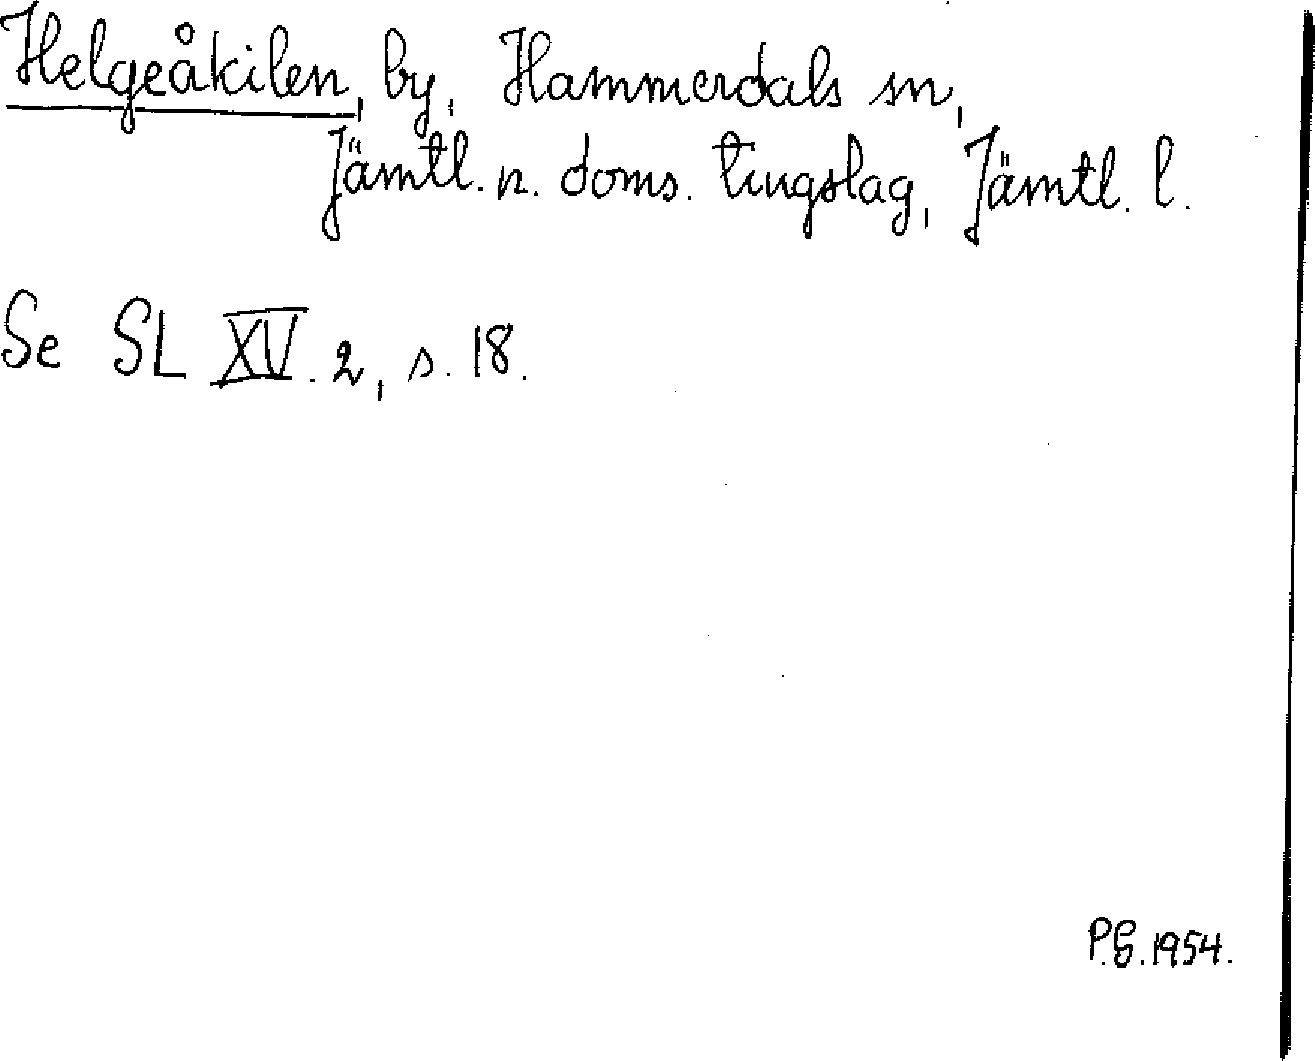 Helgeåkilen, by, Hammerdals sn,
Jämtl. n. doms. tingslag, Jämtl. l.
Se SL XV. 2, s. 18.
P.G. 1954.